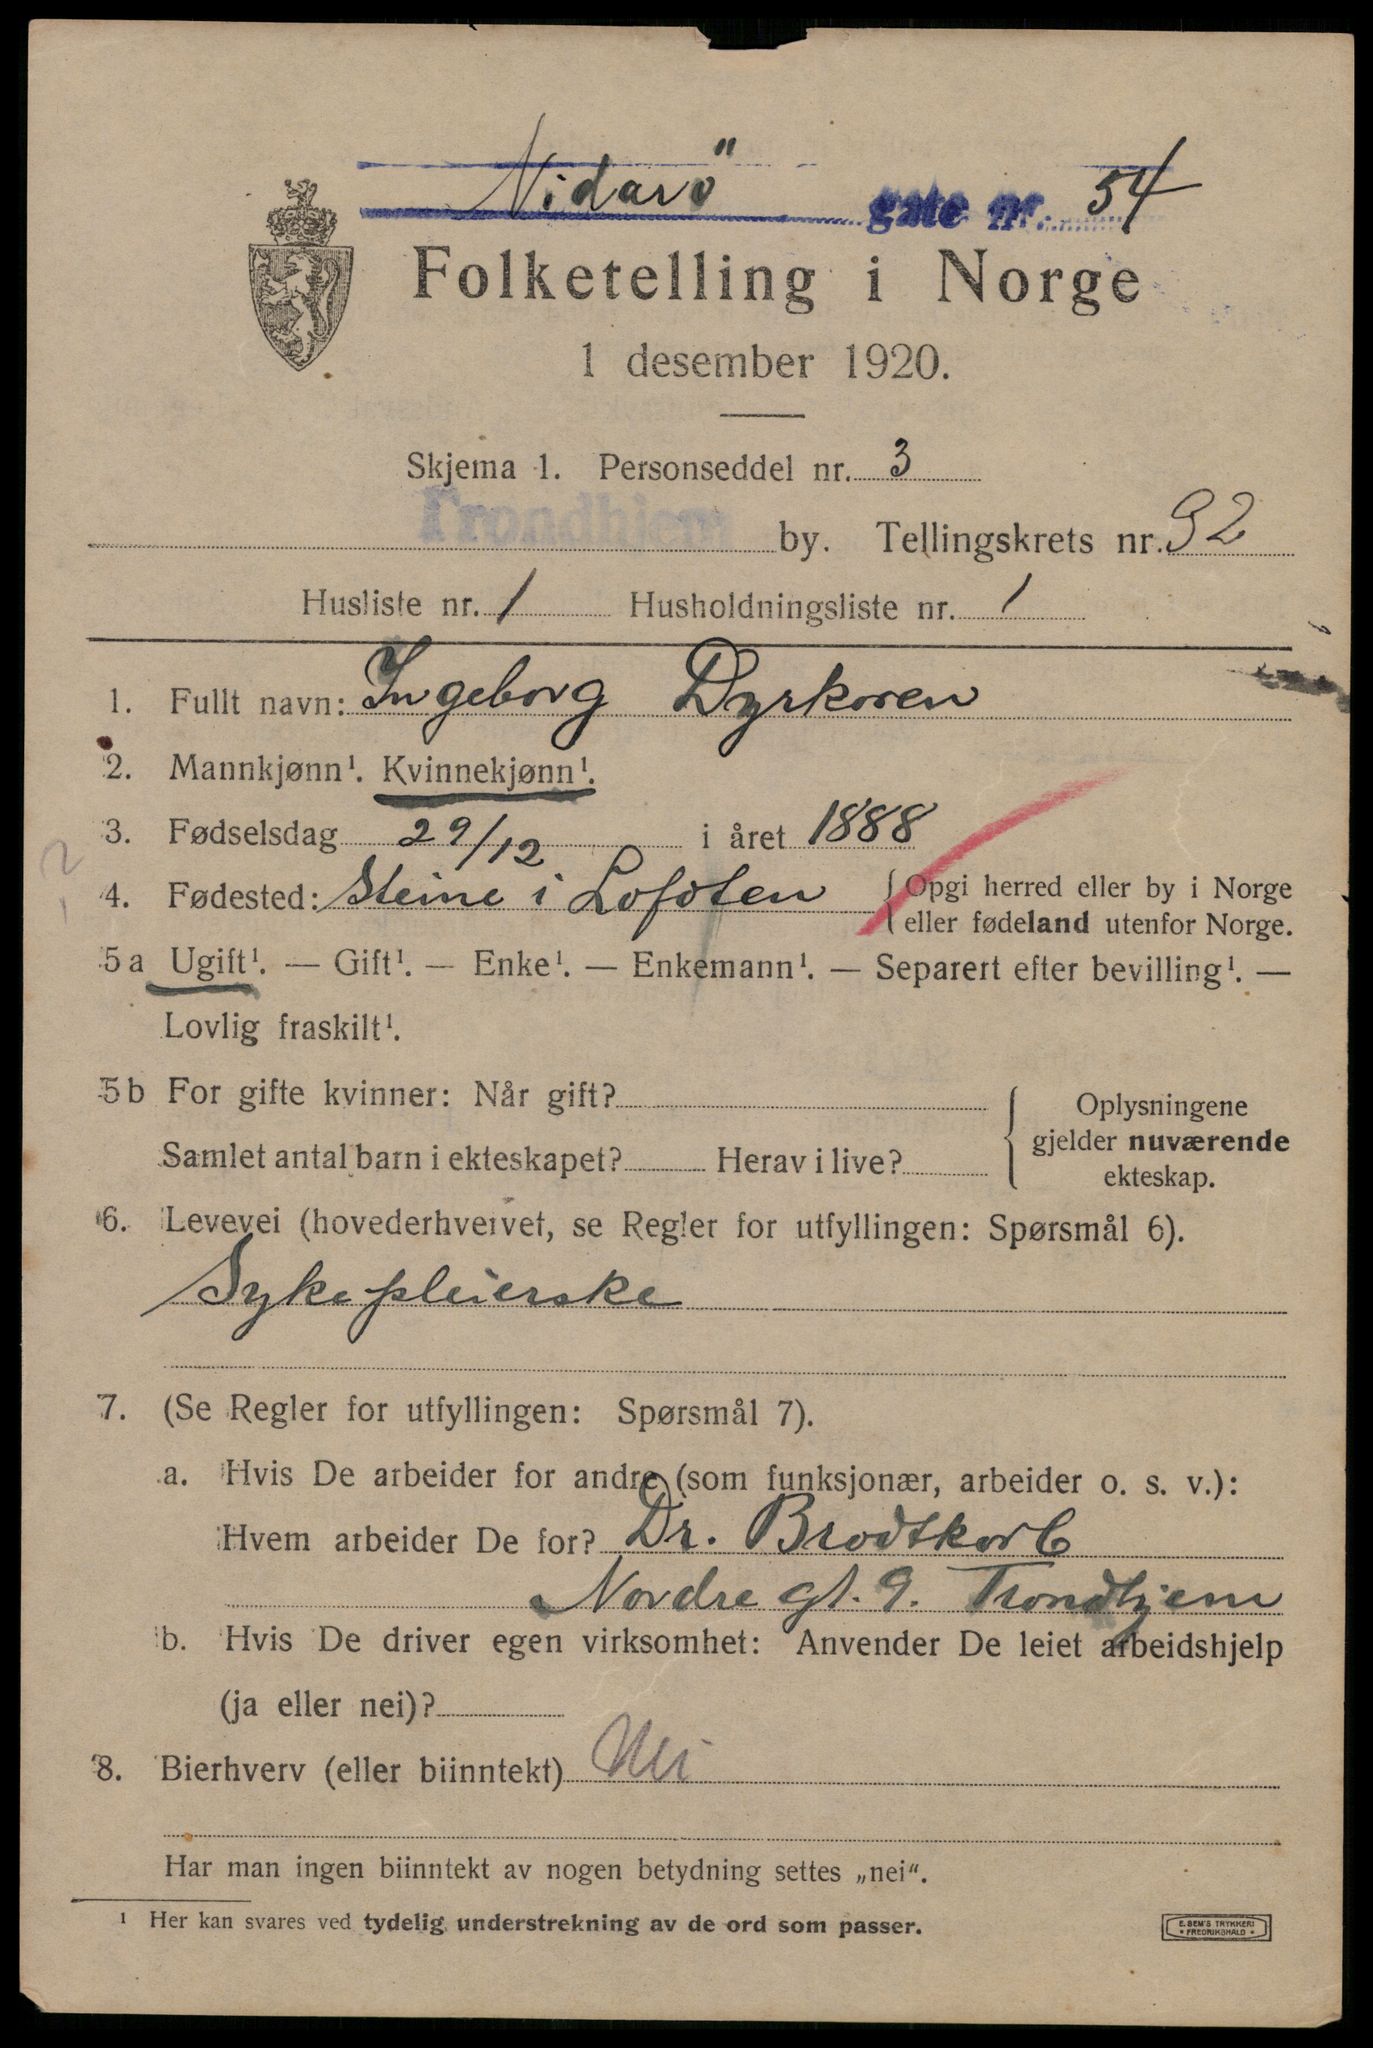 "Nidarö" gate nr. 54
Folketelling i Norge
1 desember 1920.
Skjema 1. Personseddel nr. 3
Trondhjem by. Tellingskrets nr. 92
Husliste nr. 1 Husholdningsliste nr. 1
1. Fullt navn: Ingeborg Dyrkoren
2. Mannkjønn¹. Kvinnekjønn¹.
3. Fødselsdag 29/12 i året 1888
4. Fødested: Steine i Lofoten { Opgi herred eller by i Norge
eller fødeland utenfor Norge.
5a Ugift¹. — Gift¹. — Enke¹. — Enkemann¹. — Separert efter bevilling¹. —
Lovlig fraskilt¹.
5b For gifte kvinner: Når gift?
Samlet antal barn i ekteskapet? Herav i live?
{ Oplysningene
gjelder nuværende
ekteskap.
6. Levevei (hovederhvervet, se Regler for utfyllingen: Spørsmål 6).
Sykepleierske
7. (Se Regler for utfyllingen: Spørsmål 7).
a. Hvis De arbeider for andre (som funksjonær, arbeider o. s. v.):
Hvem arbeider De for? Dr. Brodtkorb
Nordre gt. 9. Trondhjem
b. Hvis De driver egen virksomhet: Anvender De leiet arbeidshjelp
(ja eller nei)?
8. Bierhverv (eller biinntekt) Nei
Har man ingen biinntekt av nogen betydning settes „nei“.
¹ Her kan svares ved tydelig understrekning av de ord som passer.
E. SEM'S TRYKKERI
• FREDRIKSHALD •